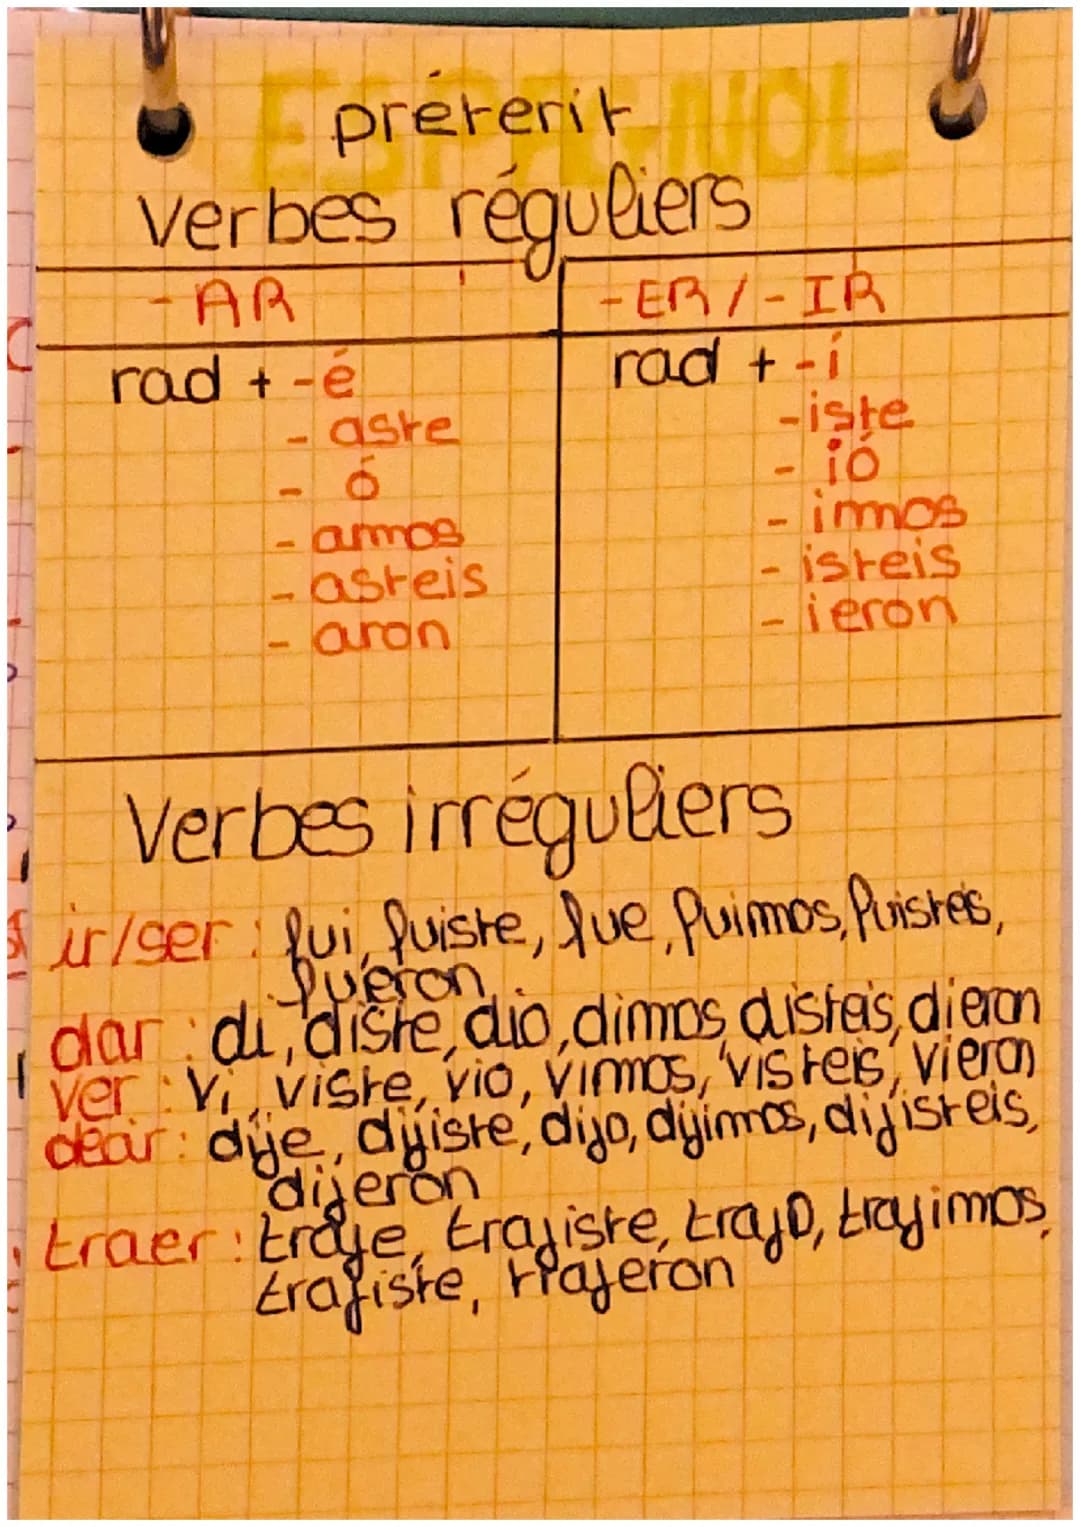 ESPAGNOL
préterit
Verbes réguliers
- AR
- ER / - IR
rad + - é
- aste
- ó
- amos
- asteis
- aron
rad + - í
- iste
- ió
- imos
- isteis
- ieron
Verbes irréguliers
ir/ser : fui, fuiste, fue, fuimos, fuisteis,
fueron
dar : di, diste, dio, dimos, disteis, dieron
ver : vi, viste, vio, vimos, visteis, vieron
decir : dije, dijiste, dijo, dijimos, dijisteis,
dijeron
traer : traje, trajiste, trajo, trajimos,
trajiste, trajeron